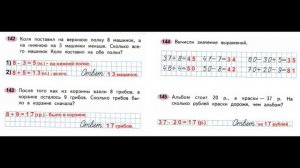 142 Коля поставил на верхнюю полку 8 машинок, а
на нижнюю на 3 машинки меньше. Сколько все-
го машинок Коля поставил на обе полки?
1) 8 - 3 = 5 (м.) - на нижней полке.
2) 8 + 5 = 13 (м.) Ответ: 13 машинок.
143 После того как из корзины взяли 8 грибов, в
корзине осталось 9 грибов. Сколько грибов бы-
ло в корзине сначала?
8 + 9 = 17 (гр.) - было в корзине.
Ответ: 17 грибов.
144 Вычисли значения выражений.
37 + 8 = 45 50 - 30 + 5 =
47 + 7 = 54 80 - 50 + 2 =
145 Альбом стоит 20 р., а краски — 37 р. На
сколько рублей краски дороже, чем альбом?
37 - 20 = 17 (р.) Ответ: на 17 рублей.